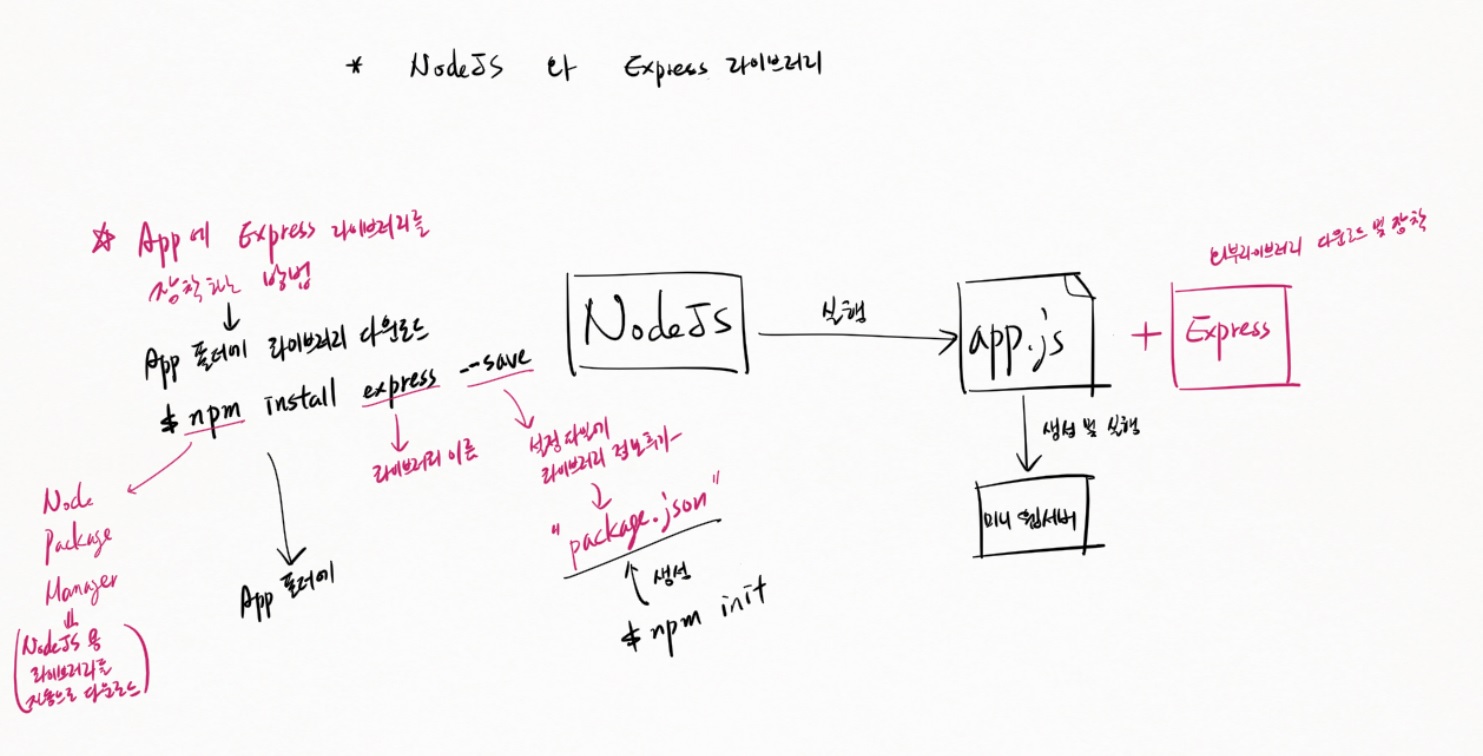 * NodeJS 와 Express 라이브러리
☆ App에 Express 라이브러리를
장착하는 방법
↓
App 폴더에 라이브러리 다운로드
$ npm install express --save
Node
Package
Manager
(NodeJS 용
라이브러리를
자동으로 다운로드)
App 폴더에
라이브러리 이름
설정파일에
라이브러리 정보추가
"package.json"
생성
$ npm init
NodeJS
실행
app.js
+
Express
외부라이브러리 다운로드 및 장착
생성 및 실행
미니 웹서버